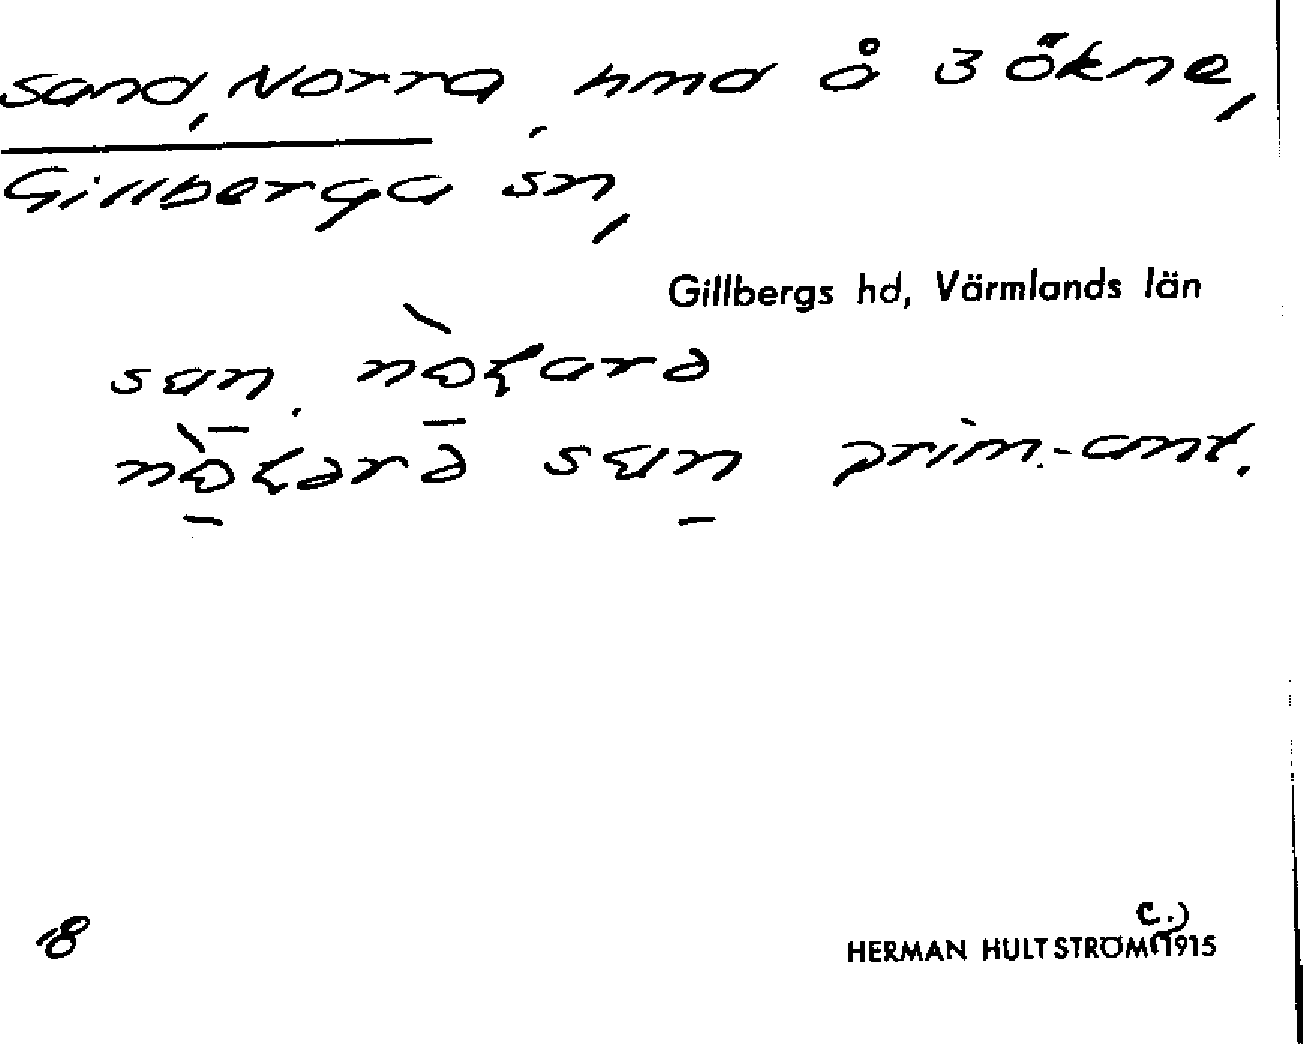 Sand, Norra, hmd å 3 Ökne,
Gillberga sn,
Gillbergs hd, Värmlands län
san.
san prim.-ant.
18
HERMAN HULTSTRÖM (C.) 1915